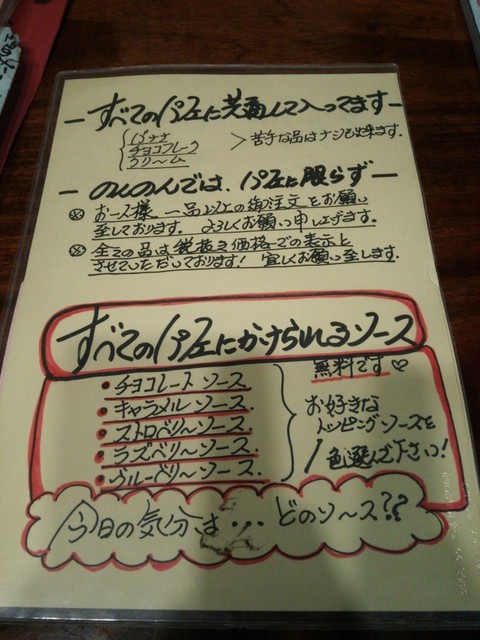 ーすべてのパフェに共通して入ってますー
バナナ
チョコフレーク
クリーム
＞苦手な品はナシも出来ます。
ーのんのんでは、パフェに限らずー
※お一人様 一品以上の御注文をお願い
至しております。よろしくお願い申し上げます。
※全ての品は税抜き価格での表示と
させていただいております！宜しくお願い至します。
すべてのパフェにかけられるソース
無料です♡
・チョコレートソース
・キャラメルソース
・ストロベリーソース
・ラズベリーソース
・ブルーベリーソース
お好きな
トッピングソースを
1色選んで下さいっ！
今日の気分は…どのソース??